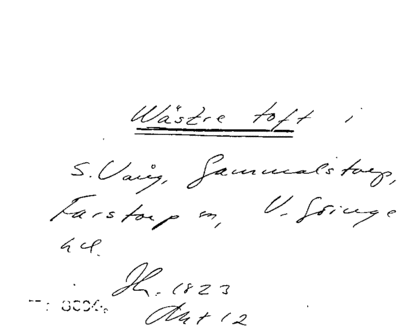 Wästre toft i
S. Vång, Gammalstorp,
Farstorp m, V. Göinge
hd.
Jh. 1823
Akt 12